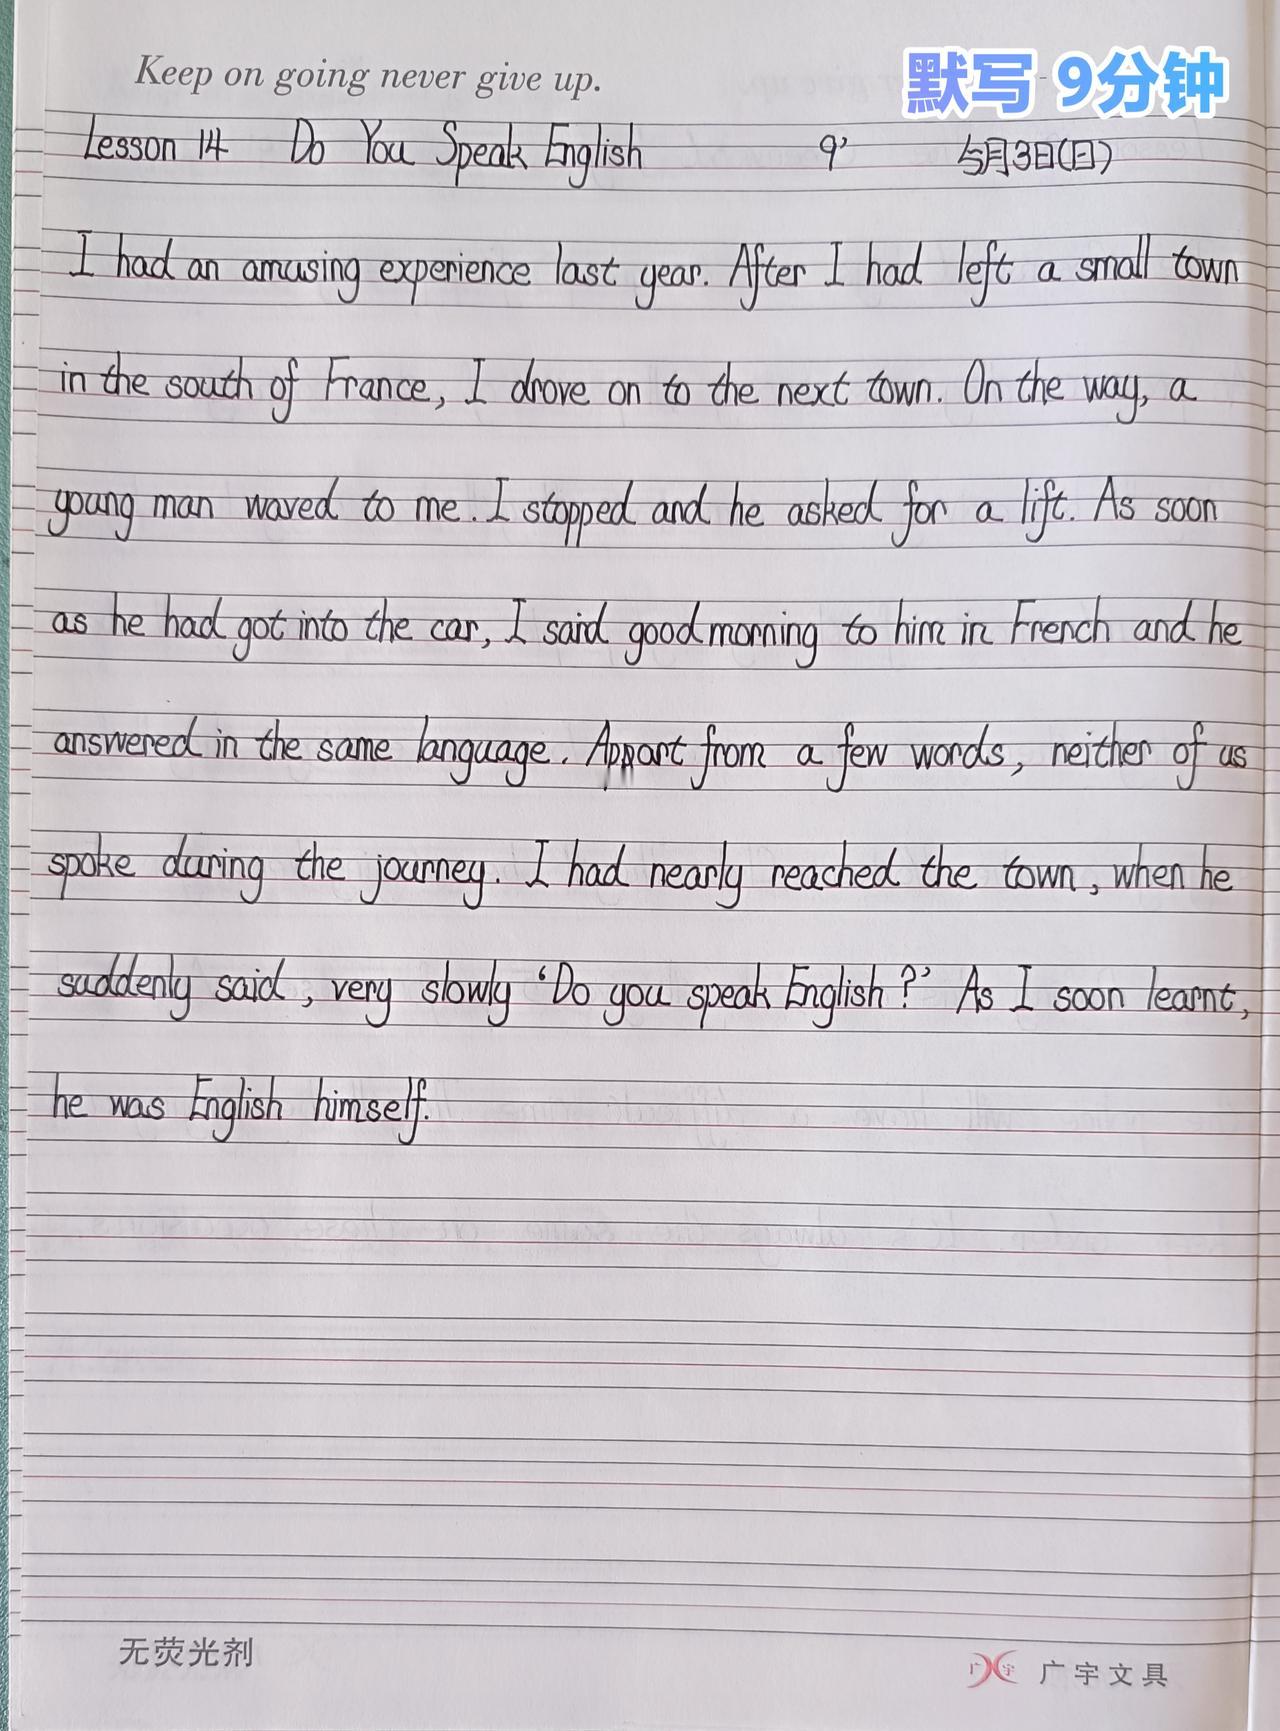 Keep on going never give up.
默写 9分钟
Lesson 14 Do You Speak English 9' 5月3日(日)
I had an amusing experience last year. After I had left a small town
in the south of France, I drove on to the next town. On the way, a
young man waved to me. I stopped and he asked for a lift. As soon
as he had got into the car, I said good morning to him in French and he
answered in the same language. Appart from a few words, neither of us
spoke during the journey. I had nearly reached the town, when he
suddenly said, very slowly ‘Do you speak English?’ As I soon learnt,
he was English himself.
无荧光剂
广宇文具